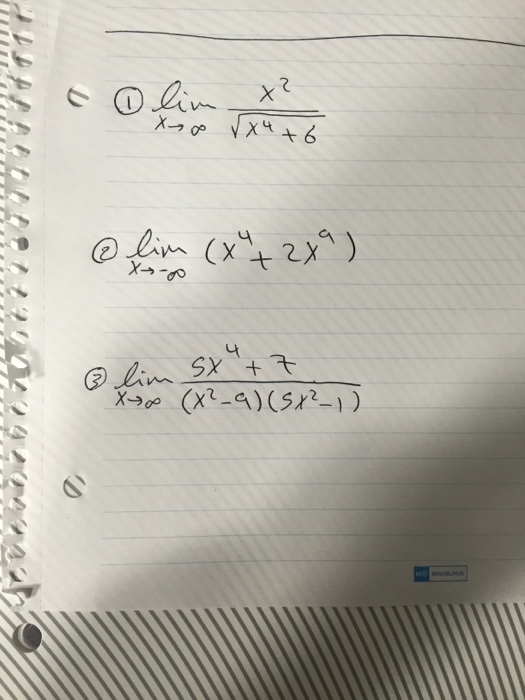 ① lim x→∞ x² / √(x⁴ + 6)
② lim x→-∞ (x⁴ + 2x⁹)
③ lim x→∞ (5x⁴ + 7) / ((x² - 9)(5x² - 1))